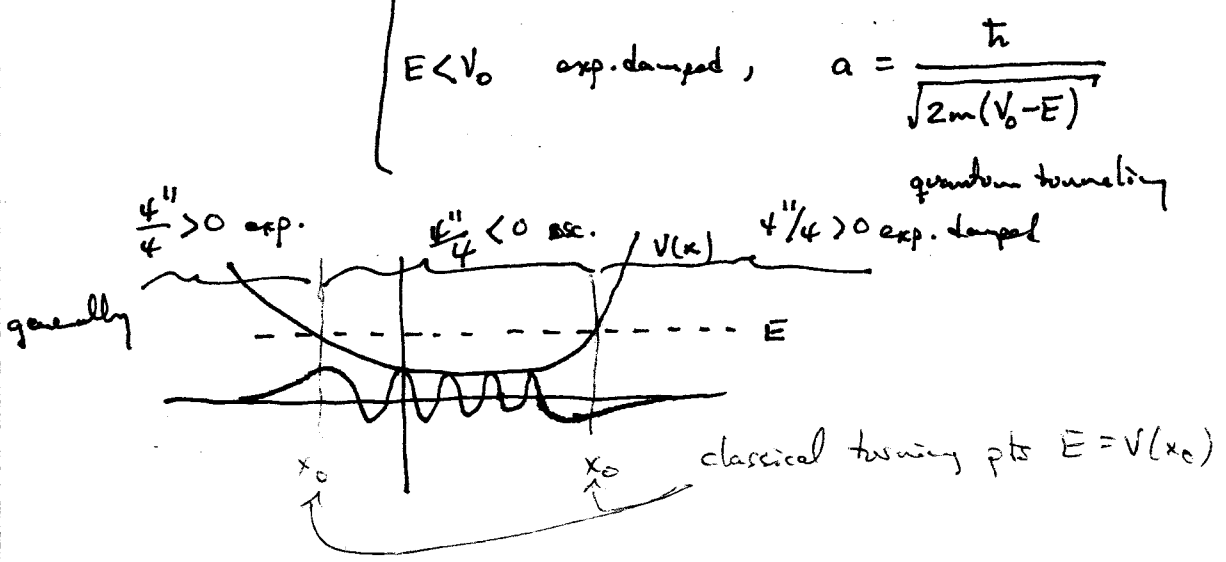 E < V₀ exp. damped , a = ħ / √(2m(V₀-E))
quantum tunneling
ψ''/ψ > 0 exp.
ψ''/ψ < 0 osc.
V(x)
ψ''/ψ > 0 exp. damped
generally
E
x₀
x₀
classical turning pts E = V(x₀)